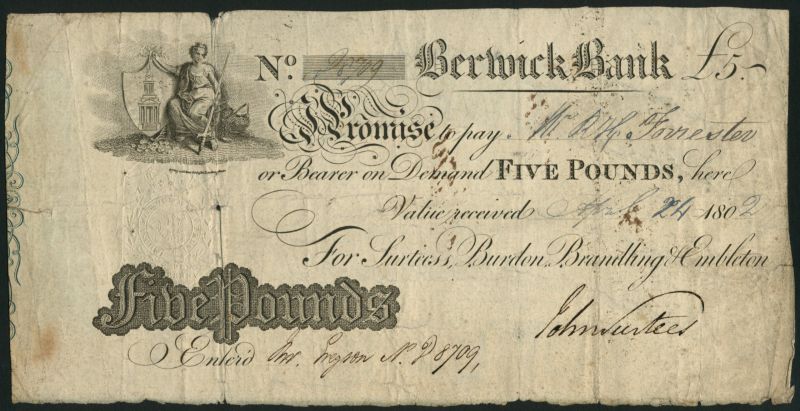 No. D8709 Berwick Bank £5.-
I Promise to pay Mr. R. H. Forrester
or Bearer on Demand FIVE POUNDS, here
Value received April 24 1802
For Surtees, Burdon, Brandling & Embleton
Five Pounds
John Surtees
Enter'd No. D8709,